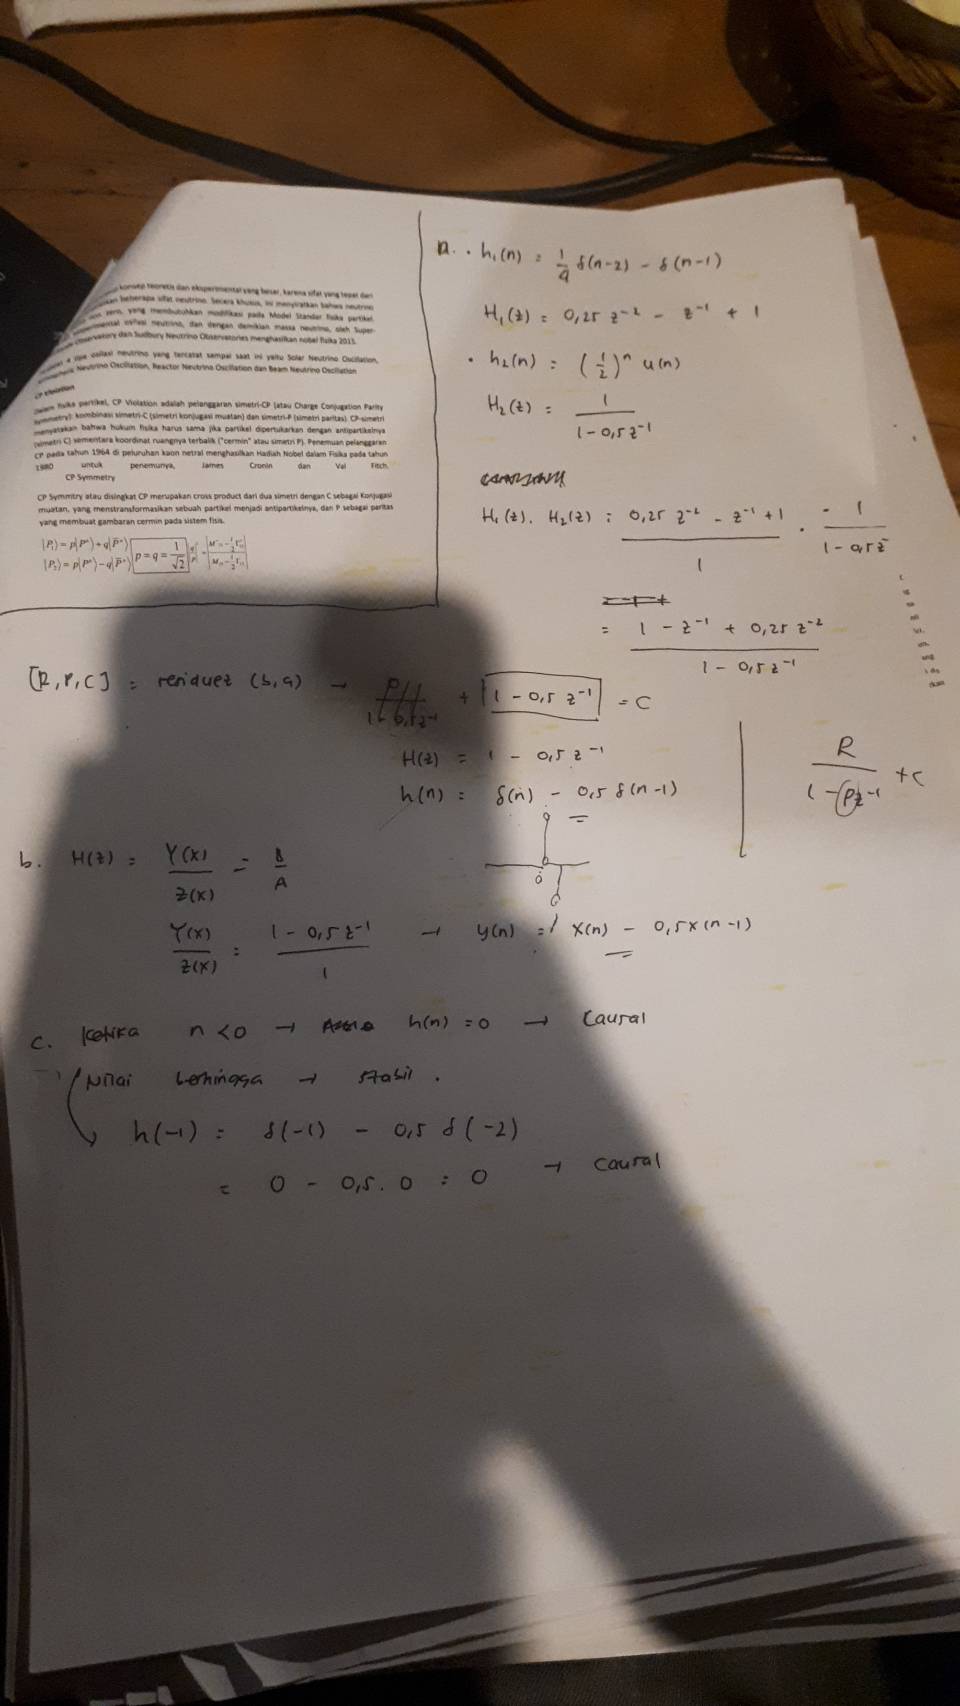 konsep teoretis dan eksperimental yang besar, karena sifat yang tepat dan
beberapa sifat neutrino. Secara khusus, ini menyiratkan bahwa neutrino
yang membutuhkan modifikasi pada Model Standar fisika partikel.
osilasi neutrino, dan dengan demikian massa neutrino, oleh Super-
Observatory dan Sudbury Neutrino Observatories menghasilkan nobel fisika 2015.
4 tipe osilasi neutrino yang tercatat sampai saat ini yaitu Solar Neutrino Oscillation,
Neutrino Oscillation, Reactor Neutrino Oscillation dan Beam Neutrino Oscillation
CP Violation
Dalam fisika partikel, CP Violation adalah pelanggaran simetri-CP (atau Charge Conjugation Parity
Symmetry): kombinasi simetri-C (simetri konjugasi muatan) dan simetri-P (simetri paritas). CP-simetri
menyatakan bahwa hukum fisika harus sama jika partikel dipertukarkan dengan antipartikelnya
(simetri C) sementara koordinat ruangnya terbalik ("cermin" atau simetri P). Penemuan pelanggaran
CP pada tahun 1964 di peluruhan kaon netral menghasilkan Hadiah Nobel dalam Fisika pada tahun
1980 untuk penemunya, James Cronin dan Val Fitch.
CP Symmetry
CP Symmtry atau disingkat CP merupakan cross product dari dua simetri dengan C sebagai Konjugasi
muatan, yang menstransformasikan sebuah partikel menjadi antipartikelnya, dan P sebagai paritas
yang membuat gambaran cermin pada sistem fisis.
p = q = 1/√2
a. • h₁(n) = 1/4 δ(n-2) - δ(n-1)
H₁(z) = 0,25 z⁻² - z⁻¹ + 1
• h₂(n) = (1/2)ⁿ u(n)
H₂(z) = 1 / 1 - 0,5 z⁻¹
H₁(z). H₂(z) = 0,25 z⁻² - z⁻¹ + 1 / 1 . 1 / 1 - 0,5 z⁻
= 1 - z⁻¹ + 0,25 z⁻² / 1 - 0,5 z⁻¹
[R, P, C] = residuez (b,a) → + 1 - 0,5 z⁻¹ = C
H(z) = 1 - 0,5 z⁻¹
h(n) = δ(n) - 0,5 δ(n-1)
0
R / 1 - Pz⁻¹ + C
b. H(z) = Y(x) / z(x) = B / A
Y(x) / z(x) = 1 - 0,5 z⁻¹ / 1 → y(n) = x(n) - 0,5 x(n-1)
c. Ketika n < 0 → h(n) = 0 → Causal
Nilai berhingga → stabil.
h(-1) = δ(-1) - 0,5 δ(-2)
= 0 - 0,5 . 0 = 0 → causal